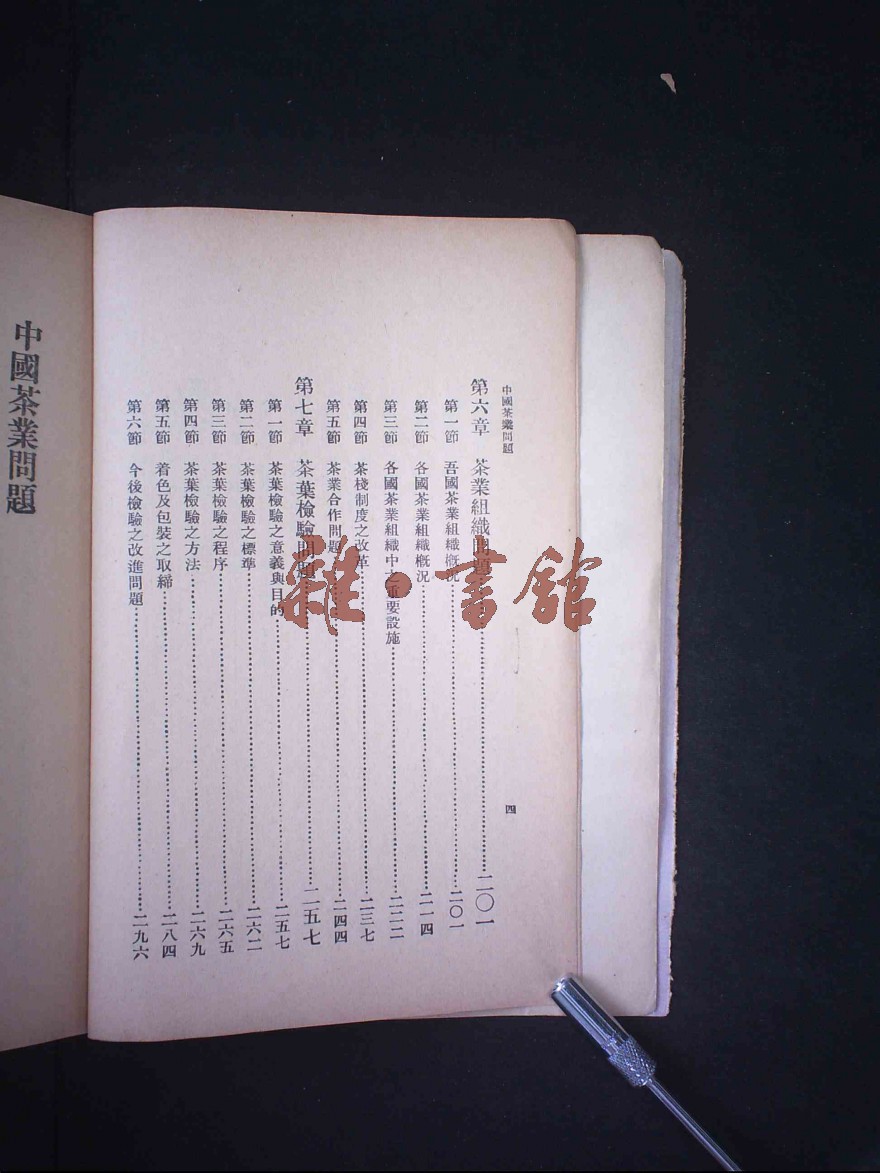 中國茶業問題
四
第六章　茶業組織問題……二〇一
第一節　吾國茶業組織概況……二〇一
第二節　各國茶業組織概況……二一四
第三節　各國茶業組織中之重要設施……二二二
第四節　茶棧制度之改革……二三七
第五節　茶業合作問題……二四四
第七章　茶葉檢驗問題……二五七
第一節　茶葉檢驗之意義與目的……二五七
第二節　茶葉檢驗之標準……二六二
第三節　茶葉檢驗之程序……二六五
第四節　茶葉檢驗之方法……二六九
第五節　着色及包裝之取締……二八四
第六節　今後檢驗之改進問題……二九六
中國茶業問題
雜·書館